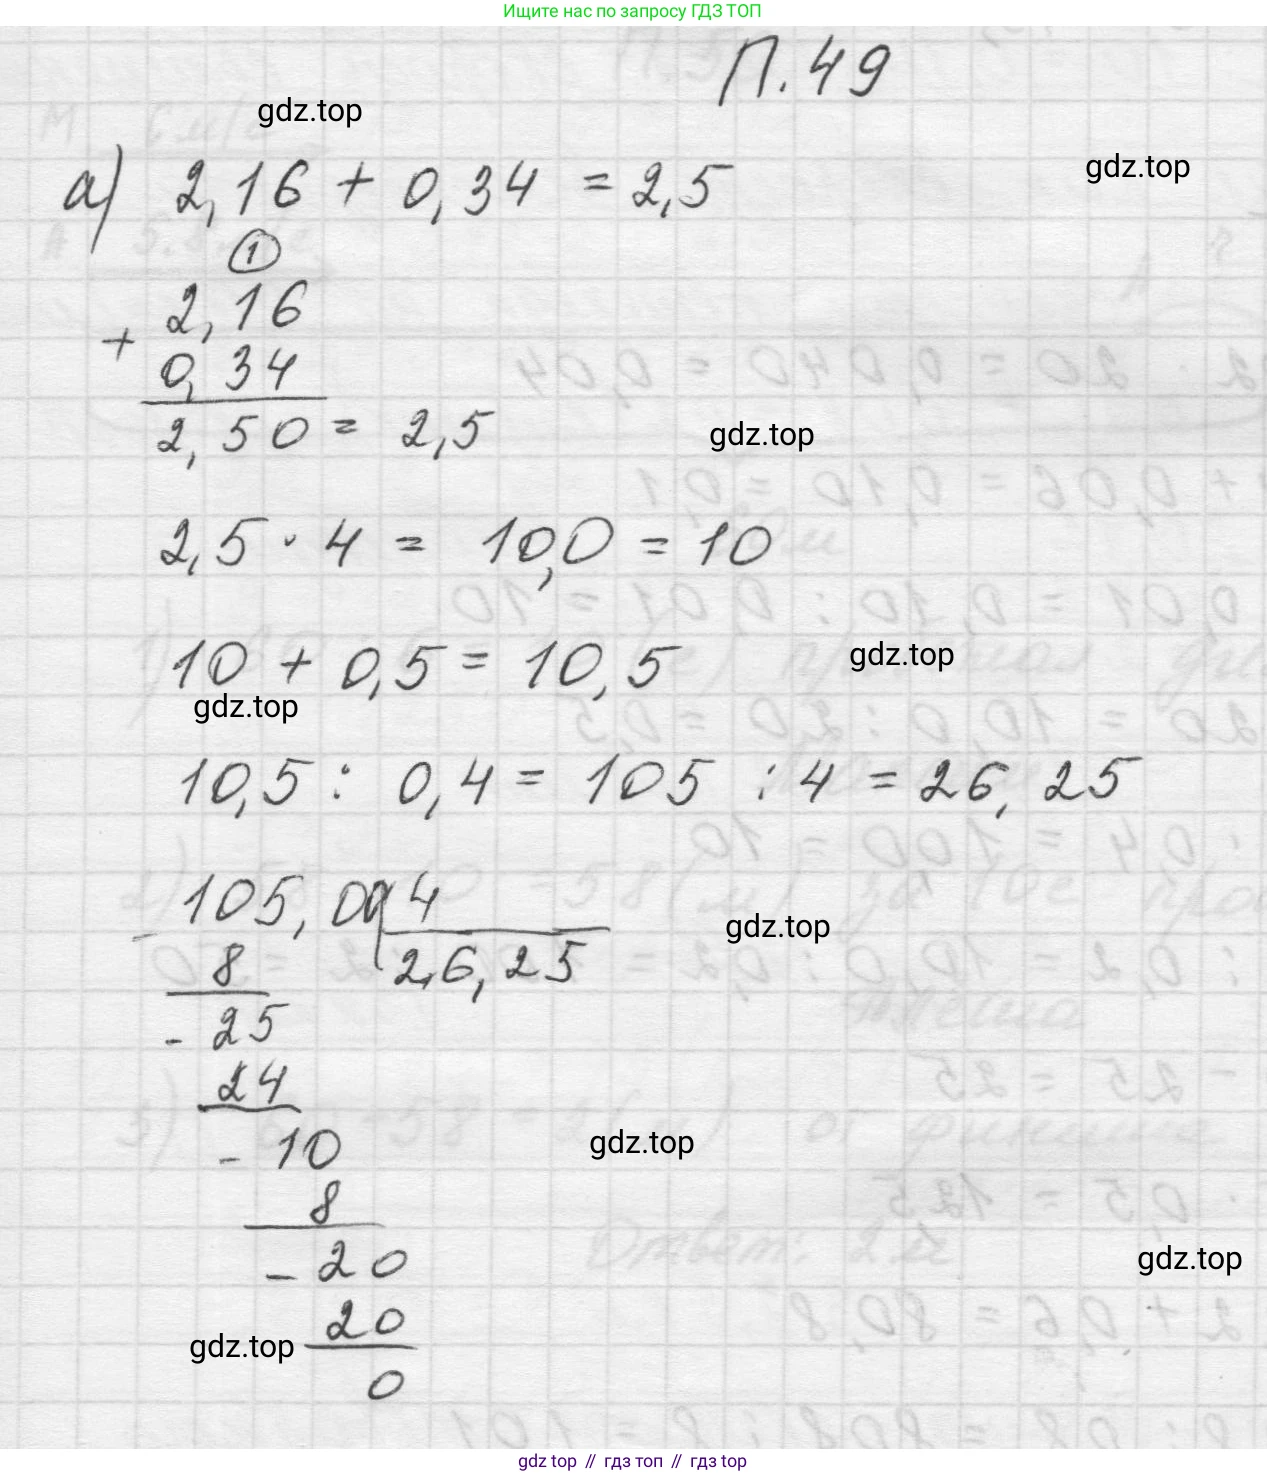 Ищите нас по запросу ГДЗ ТОП
П.49
gdz.top
gdz.top
а) 2,16 + 0,34 = 2,5
1
2,16
+
0,34
2,50 = 2,5
gdz.top
2,5 · 4 = 10,0 = 10
10 + 0,5 = 10,5
gdz.top
gdz.top
10,5 : 0,4 = 105 : 4 = 26,25
- 105,00 4
8 26,25
gdz.top
- 25
24
- 10
gdz.top
8
- 20
gdz.top
20
gdz.top
0
gdz top // гдз топ // гдз top